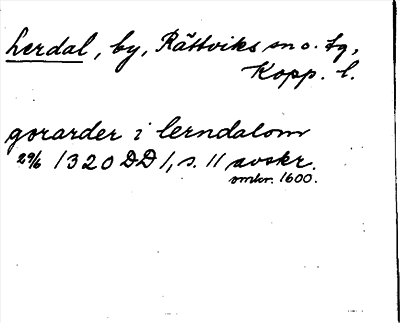 herdal, by, Rättviks sn o. tg,
Kopp. l.
gorarder i lerndalom
29/6 1320 DD 1, s. 11 avskr.
omkr. 1600.